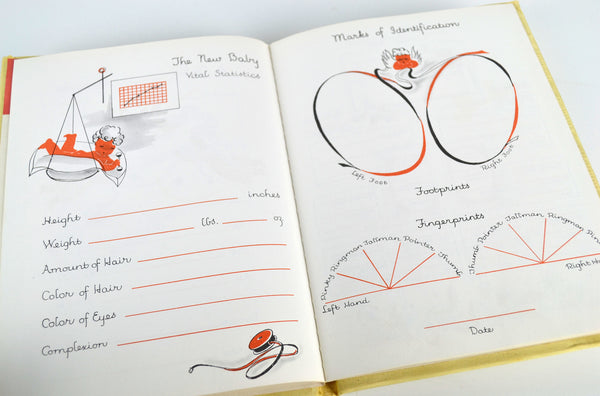 The New Baby
Vital Statistics
Height inches
Weight lbs. oz
Amount of Hair
Color of Hair
Color of Eyes
Complexion
Marks of Identification
Left Foot
Right Foot
Footprints
Fingerprints
Pinky Ringman Tallman Pointer Thumb
Thumb Pointer Tallman Ringman
Left Hand
Right
Date